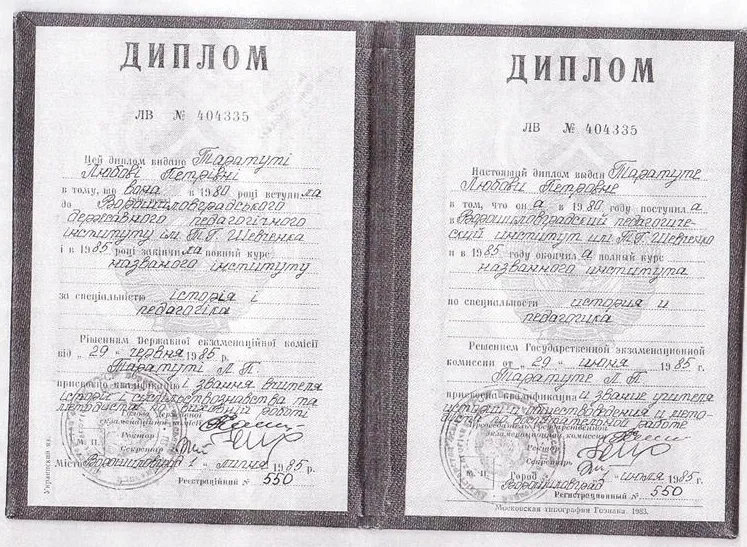 ДИПЛОМ
ЛВ № 404335
Цей диплом видано Таратуті
Любові Петрівні
в тому, що вона в 1980 році вступила
до Ворошиловградського
державного педагогічного
інституту ім. Т.Г. Шевченка
і в 1985 році закінчила повний курс
названого інституту
за спеціальністю історія і
педагогіка
Рішенням Державної екзаменаційної комісії
від „29" червня 1985 р.
Таратуті Л. П.
присвоєно кваліфікацію і звання вчителя
історії і суспільствознавства та
методиста по виховній роботі
Голова Державної
екзаменаційної комісії
Ректор
Секретар
М. П.
Місто Ворошиловград 1 „ липня 1985 р.
Реєстраційний № 550
Украинский яз.
ДИПЛОМ
ЛВ № 404335
Настоящий диплом выдан Таратуте
Любови Петровне
в том, что он а в 1980 году поступил а
в Ворошиловградский педагогиче-
ский институт им. Т.Г. Шевченко
и в 1985 году окончил а полный курс
названного института
по специальности история и
педагогика
Решением Государственной экзаменационной
комиссии от „29" июня 1985 г.
Таратуте Л. П.
присвоена квалификация и звание учителя
истории и обществоведения и мето-
диста воспитательной работе
Председатель Государственной
экзаменационной комиссии
Ректор
Секретарь
М. П.
Город Ворошиловград „ июля 1985 г.
Регистрационный № 550
Московская типография Гознака. 1983.